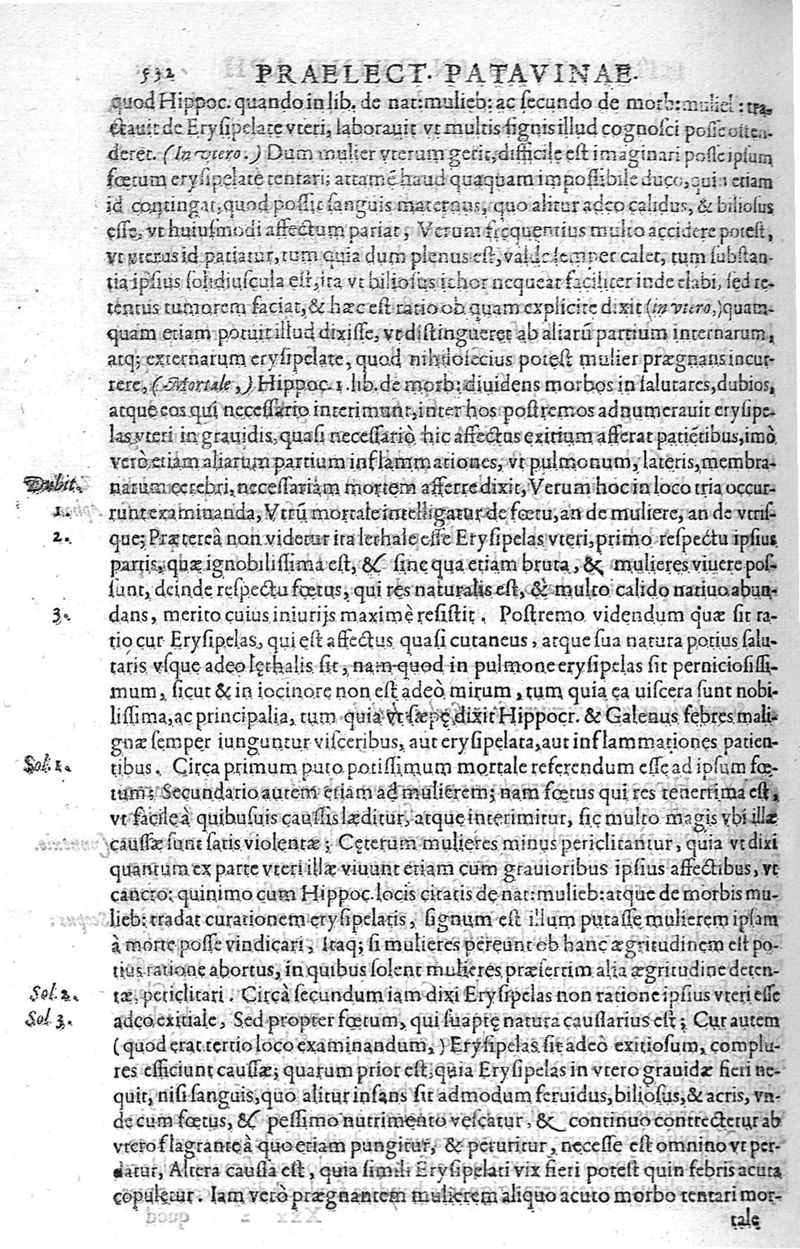 532 PRAELECT. PATAVINAE.
quod Hippoc. quando in lib. de nat: mulieb: ac secundo de morb: muliei : tra-
ctauit de Erysipelate vteri, laborauit vt multis signis illud cognosci posse osten-
deret. (In vtero.) Dum mulier vterum gerit, difficile est imaginari posse ipsum
fœtum erysipelate tentari; attamē haud quaquam impossibile duco, quin etiam
id contingat, quod possit sanguis maternus, quo alitur adeo calidus, & biliosus
esse, vt huiusmodi affectum pariat, Verum frequentius multo accidere potest,
vt vterus id patiatur, tum quia dum plenus est, valde semper calet, tum substan-
tia ipsius solidiuscula est, ita vt biliosus ichor nequeat faciliter inde elabi, sed re-
tentus tumorem faciat, & hæc est ratio ob quam explicite dixit (in vtero,) quam-
quam etiam potuit illud dixisse, vt distingueret ab aliarū partium internarum,
atq; externarum erysipelate, quod nihilo secius potest mulier prægnans incur-
rere, (Mortale,) Hippoc. 1. lib. de morb: diuidens morbos in salutares, dubios,
atque eos qui necessario interimunt, inter hos postremos adnumerauit erysipe-
las vteri in grauidis, quasi necessariò hic affectus exitium afferat patiētibus, imò
verò etiam aliarum partium inflammationes, vt pulmonum, lateris, membra-
Dubit. narum cerebri, necessariam mortem afferre dixit, Verum hoc in loco tria occur-
1. runt examinanda, Vtrū mortale intelligatur de fœtu, an de muliere, an de vtris-
2. que; Præterea non videtur ita lethale esse Erysipelas vteri, primo respectu ipsius
partis, quæ ignobilissima est, & sine qua etiam bruta, & mulieres viuere pos-
sunt, deinde respectu fœtus, qui res naturalis est, & multo calido natiuo abun-
3. dans, merito cuius iniurijs maximè resistit. Postremo videndum quæ sit ra-
tio cur Erysipelas, qui est affectus quasi cutaneus, atque sua natura potius salu-
taris vsque adeo lęthalis sit, nam quod in pulmone erysipelas sit perniciosissi-
mum, sicut & in iocinore non est adeò mirum, tum quia ea uiscera sunt nobi-
lissima, ac principalia, tum quia vt sæpe dixit Hippocr. & Galenus febres mali-
gnæ semper iunguntur visceribus, aut erysipelata, aut inflammationes patien-
Sol. 1. tibus. Circa primum puto potissimum mortale referendum esse ad ipsum fœ-
tum; Secundario autem etiam ad mulierem; nam fœtus qui res tenerrima est,
vt facile à quibusuis caussis læditur, atque interimitur, sic multo magis vbi illæ
caussæ sunt satis violentæ; Cęterum mulieres minus periclitantur, quia vt dixi
quantum ex parte vteri illæ viuunt etiam cum grauioribus ipsius affectibus, vt
cancro: quinimo cum Hippoc. locis citatis de nat: mulieb: atque de morbis mu-
lieb: tradat curationem erysipelatis, signum est illum putasse mulierem ipsam
à morte posse vindicari, Itaq; si mulieres pereunt ob hanc ægritudinem est po-
tius ratione abortus, in quibus solent mulieres præsertim alia ægritudine deten-
Sol. 2. tæ, periclitari. Circà secundum iam dixi Erysipelas non ratione ipsius vteri esse
Sol. 3. adeo exitiale, Sed propter fœtum, qui suapte natura caussarius est; Cur autem
(quod erat tertio loco examinandum,) Erysipelas sit adeò exitiosum, complu-
res efficiunt caussæ; quarum prior est, quia Erysipelas in vtero grauidæ fieri ne-
quit, nisi sanguis, quo alitur infans sit admodum feruidus, biliosus, & acris, vn-
de cum fœtus, & pessimo nutrimento vescatur, & continuo contrectetur ab
vtero flagrante à quo etiam pungitur, & peruritur, necesse est omnino vt per-
datur, Altera caussa est, quia simili Erysipelati vix fieri potest quin febris acuta
copuletur. Iam verò prægnantem mulierem aliquo acuto morbo tentari mor-
talę